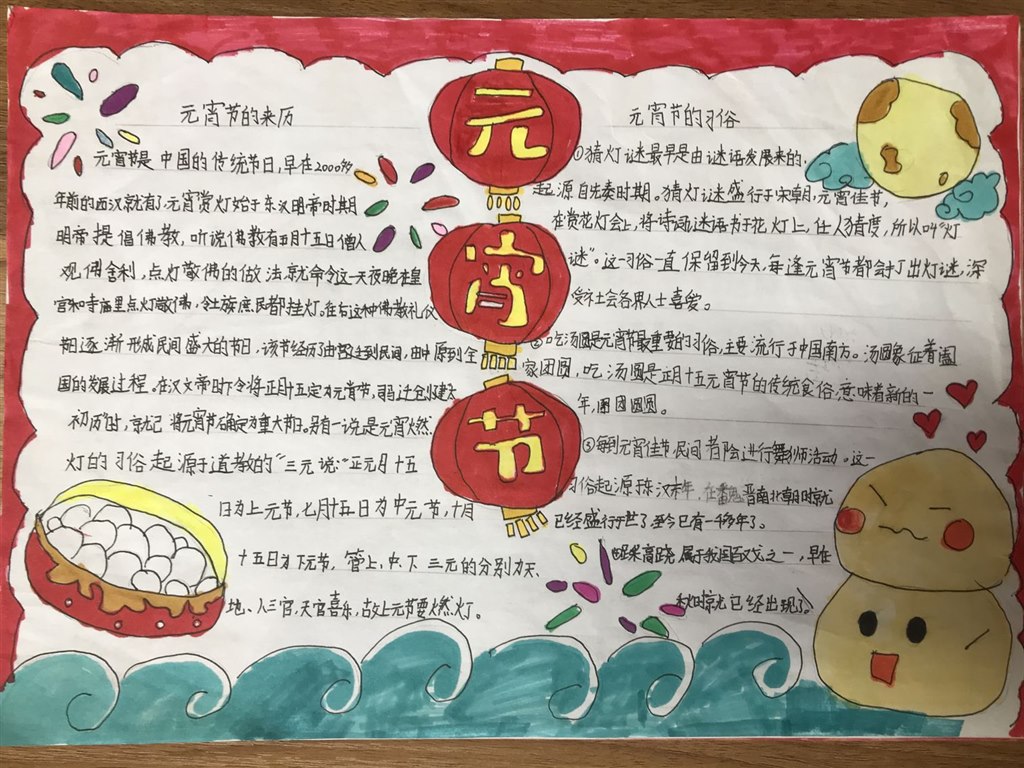 元宵节
元宵节的来历
元宵节是中国的传统节日,早在2000多
年前的西汉就有了,元宵赏灯始于东汉明帝时期
明帝提倡佛教,听说佛教有正月十五日僧人
观佛舍利,点灯敬佛的做法就命令这一天夜晚在皇
宫和寺庙里点灯敬佛,令士族庶民都挂灯。在右这种佛教礼仪
节日逐渐形成民间盛大的节日,该节经历了由宫廷到民间,由中原到全
国的发展过程。在汉文帝时下令将正月十五定为元宵节,
初历"时,就记将元宵节确定为重大节日。另有一说是元宵燃
灯的习俗起源于道教的"三元说:"正元月十五
日为上元节,七月十五日为中元节,十月
十五日为下元节,管上、中、下三元的分别为天、
地、人三官,天官喜乐,故上元节要燃灯。
元宵节的习俗
①猜灯谜最早是由谜语发展来的,
起源自先秦时期。猜灯谜盛行于宋朝,元宵佳节,
在赏花灯会上,将诗词谜语书于花灯上,任人猜度,所以叫"灯
谜"。这一习俗一直保留到今天,每逢元宵节都会打出灯谜,深
受社会各界人士喜爱。
②吃汤圆是元宵节最重要的习俗,主要流行于中国南方。汤圆象征着阖
家团圆,吃汤圆是正月十五元宵节的传统食俗,意味着新的一
年,团团圆圆。
③每到元宵佳节,民间都会进行舞狮活动。这一
习俗起源于东汉末年,在魏晋南北朝时就
已经盛行于世了,至今已有一千多年了。
④踩高跷,属于我国百戏之一,早在
秋时就已经出现了。